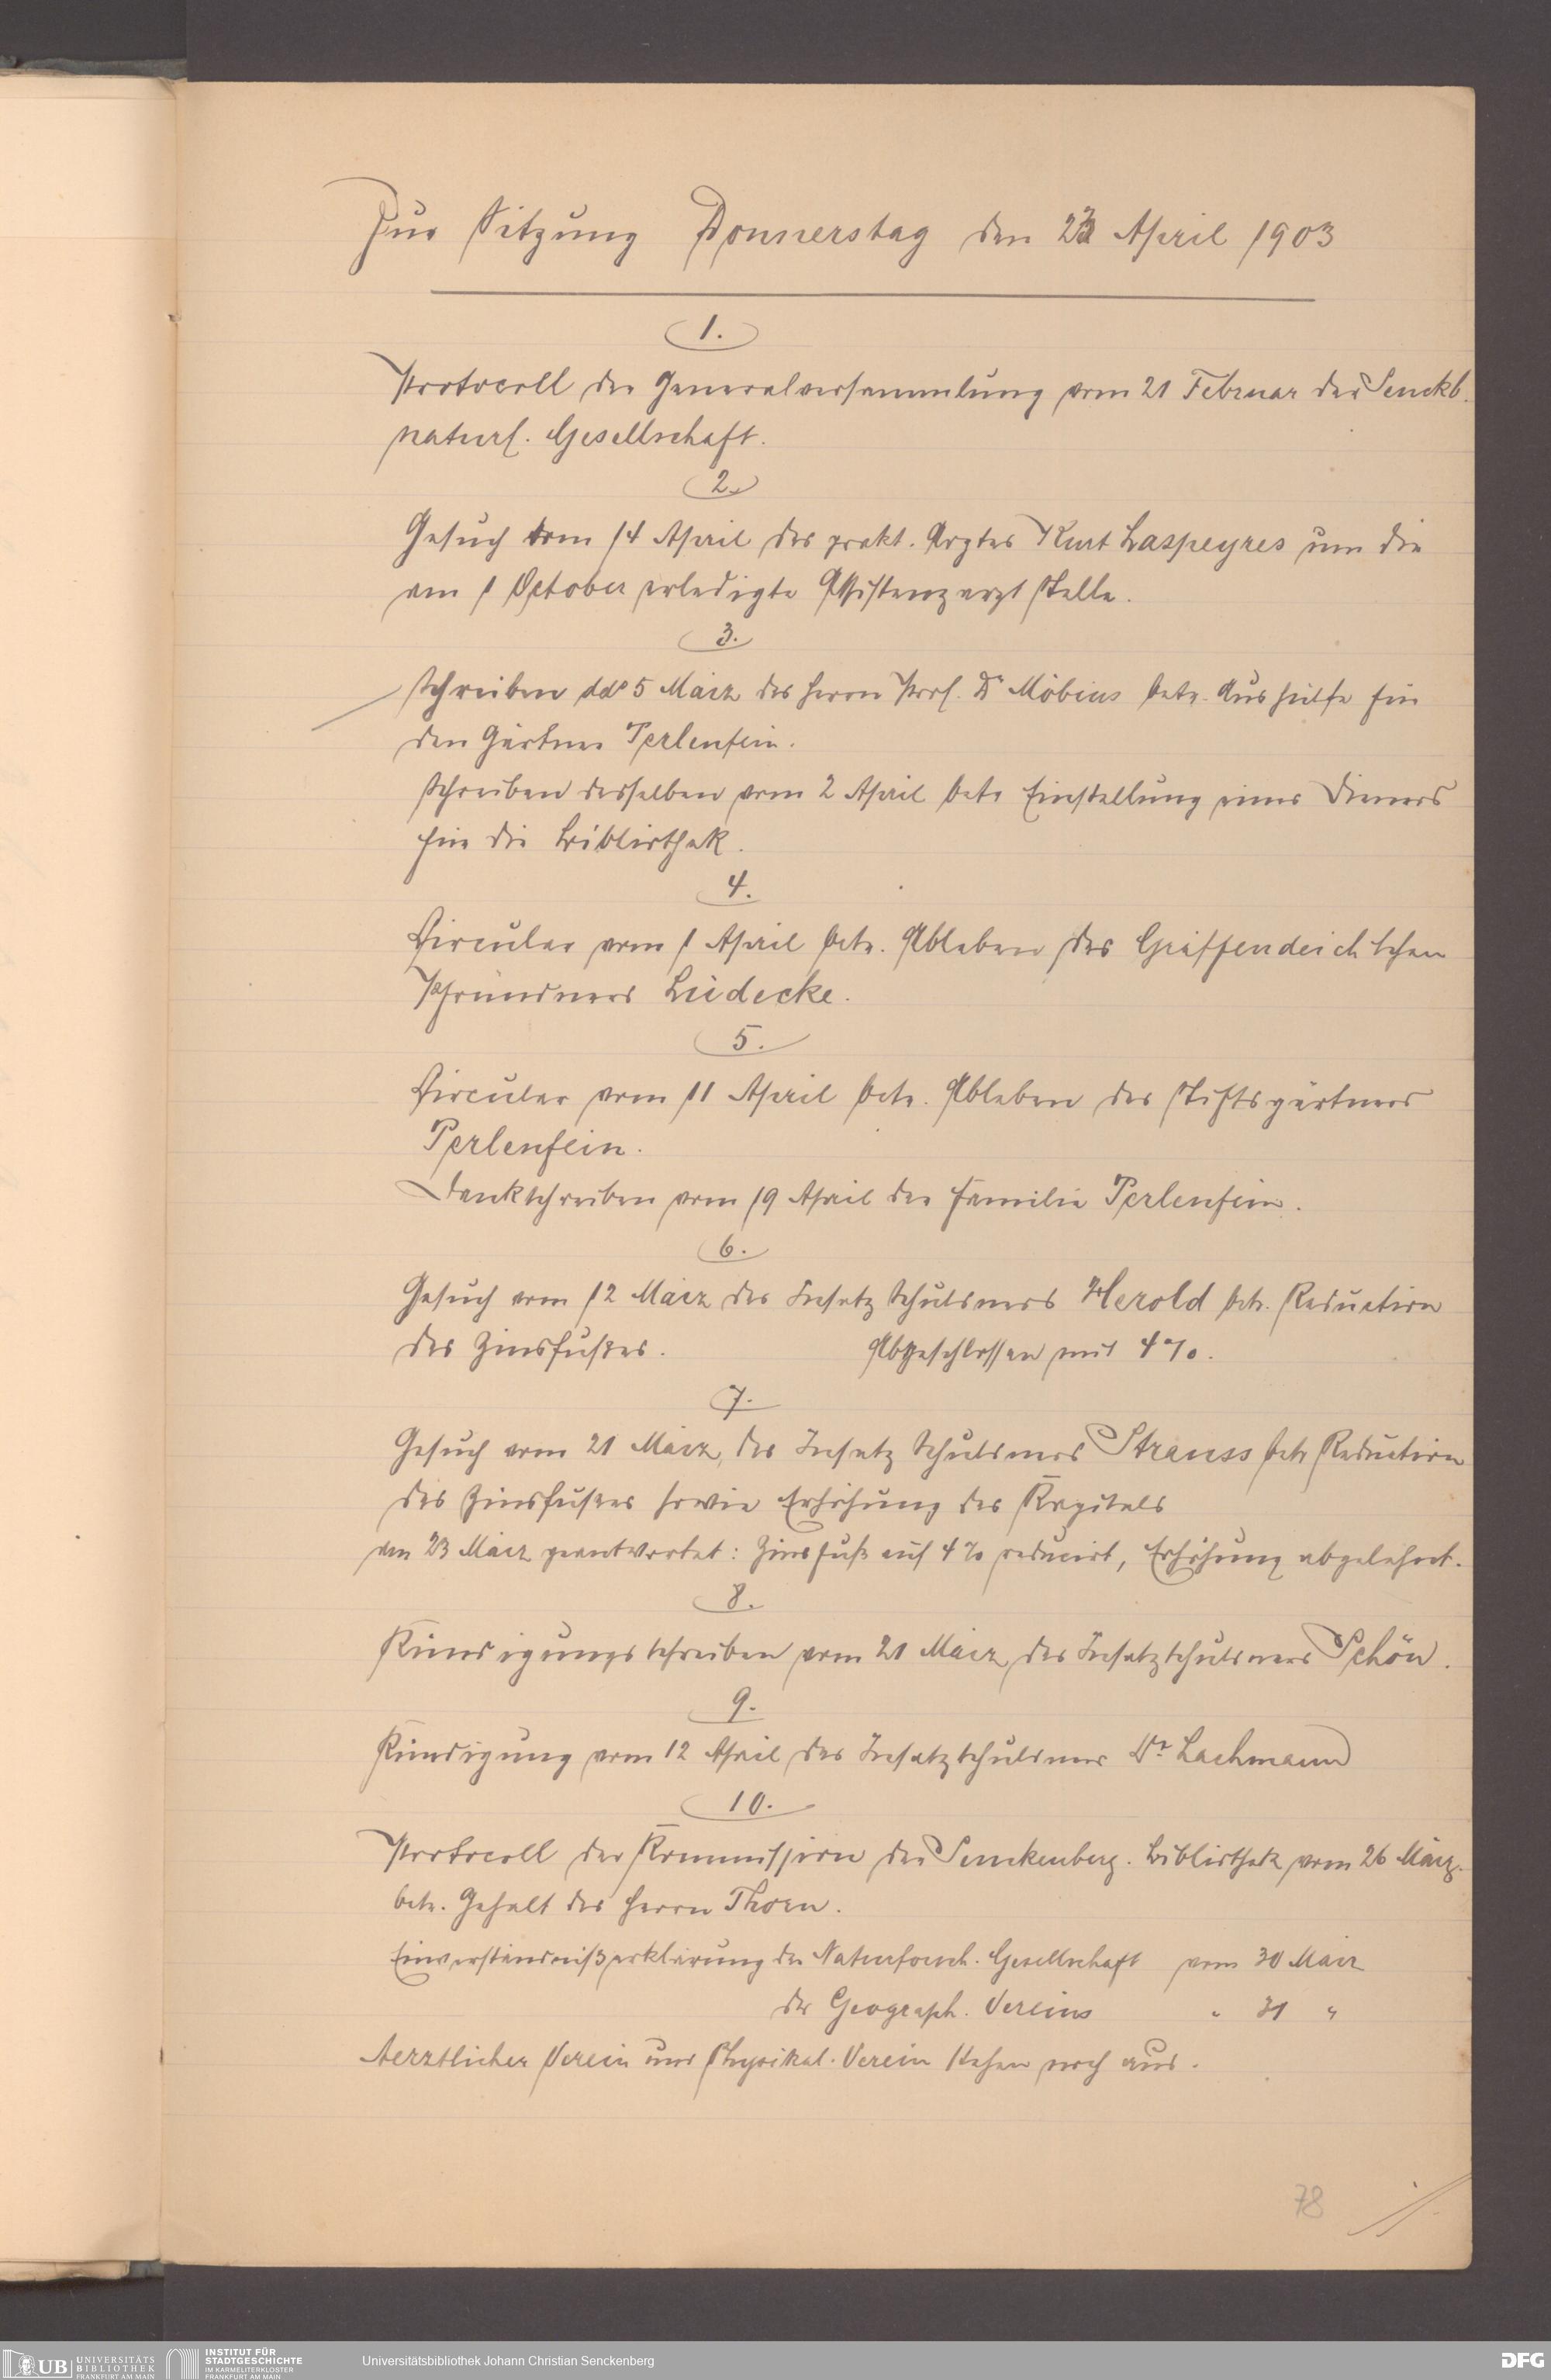 Zur Sitzung Donnerstag den 23 April 1903
1.
Protocoll der Generalversammlung vom 21 Februar der Senckb.
naturf. Gesellschaft.
2.
Gesuch vom 14 April des prakt. Arztes Kurt Laspeyres um die
am 1 October erledigte Assistenzarzt Stelle.
3.
Schreiben ddo 5 März des Herrn Prof. Dr Möbius betr. Aushülfe für
den Gärtner Perlenfein.
Schreiben desselben vom 2 April betr Einstellung eines Dieners
für die Bibliothek.
4.
Circular vom 1 April betr. Ableben des Gräffendeich'schen
Pfründners Lüdecke.
5.
Circular vom 11 April betr. Ableben des Stiftsgärtners
Perlenfein.
Dankschreiben vom 19 April der Familie Perlenfein.
6.
Gesuch vom 12 März des Insatz Schuldners Herold betr. Reduction
des Zinsfußes. Abgeschlossen mit 4%.
7.
Gesuch vom 21 März, des Insatz Schuldners Strauss betr Reduction
des Zinsfußes sowie Erhöhung des Kapitals
am 23 März geantwortet: Zinsfuß auf 4% reducirt, Erhöhung abgelehnt.
8.
Kündigungsschreiben vom 21 März des Insatzschuldners Schön.
9.
Kündigung vom 12 April des Insatzschuldners Dr. Lachmann
10.
Protocoll der Kommission der Senckenberg. Bibliothek vom 26 März.
betr. Gehalt des Herrn Thorn.
Einverständnißerklärung der Naturforsch. Gesellschaft vom 30 März
des Geograph. Vereins " 31 "
Aerztlicher Verein und Physikal. Verein stehen noch aus.
78
UB UNIVERSITÄTS BIBLIOTHEK FRANKFURT AM MAIN
INSTITUT FÜR STADTGESCHICHTE IM KARMELITERKLOSTER FRANKFURT AM MAIN
Universitätsbibliothek Johann Christian Senckenberg
DFG